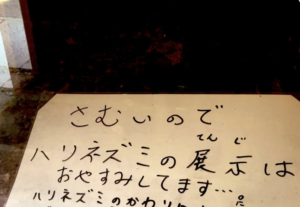 さむいので
ハリネズミの展示は
てんじ
おやすみしてます…
ハリネズミのかわりに